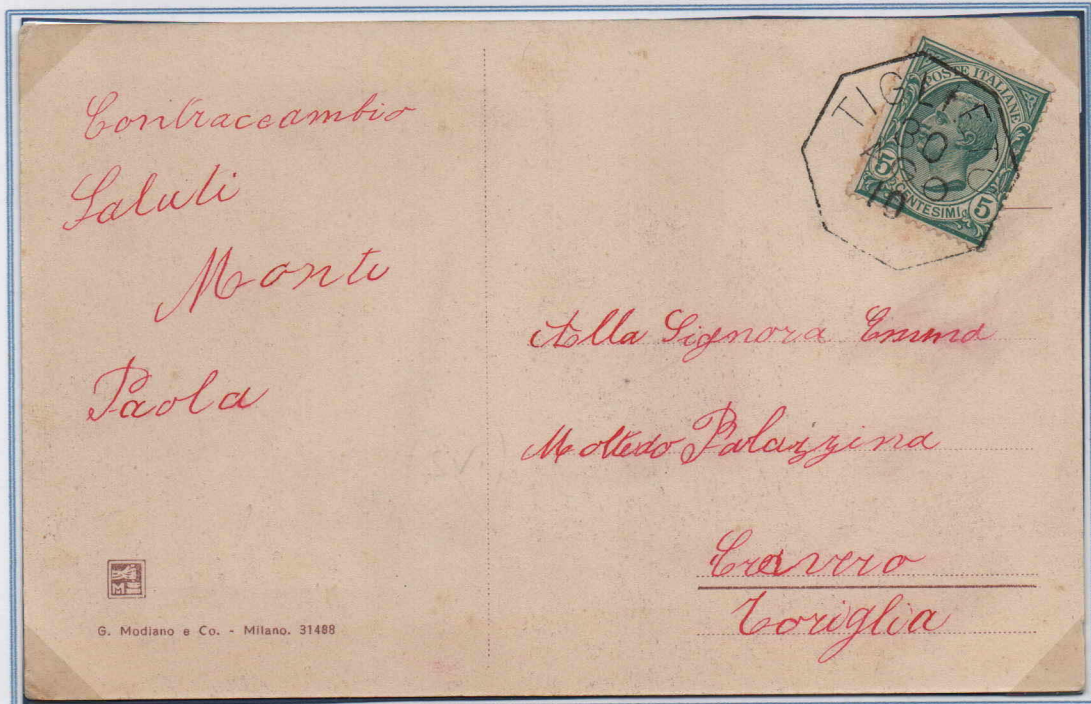 Contraccambio
Saluti
Monti
Paola
M
G. Modiano e Co. - Milano. 31488
TIGLIETO
30
AGO
10
POSTE ITALIANE
5 CENTESIMI 5
Alla Signora Emma
Moltedo Palazzina
Cravero
Torriglia